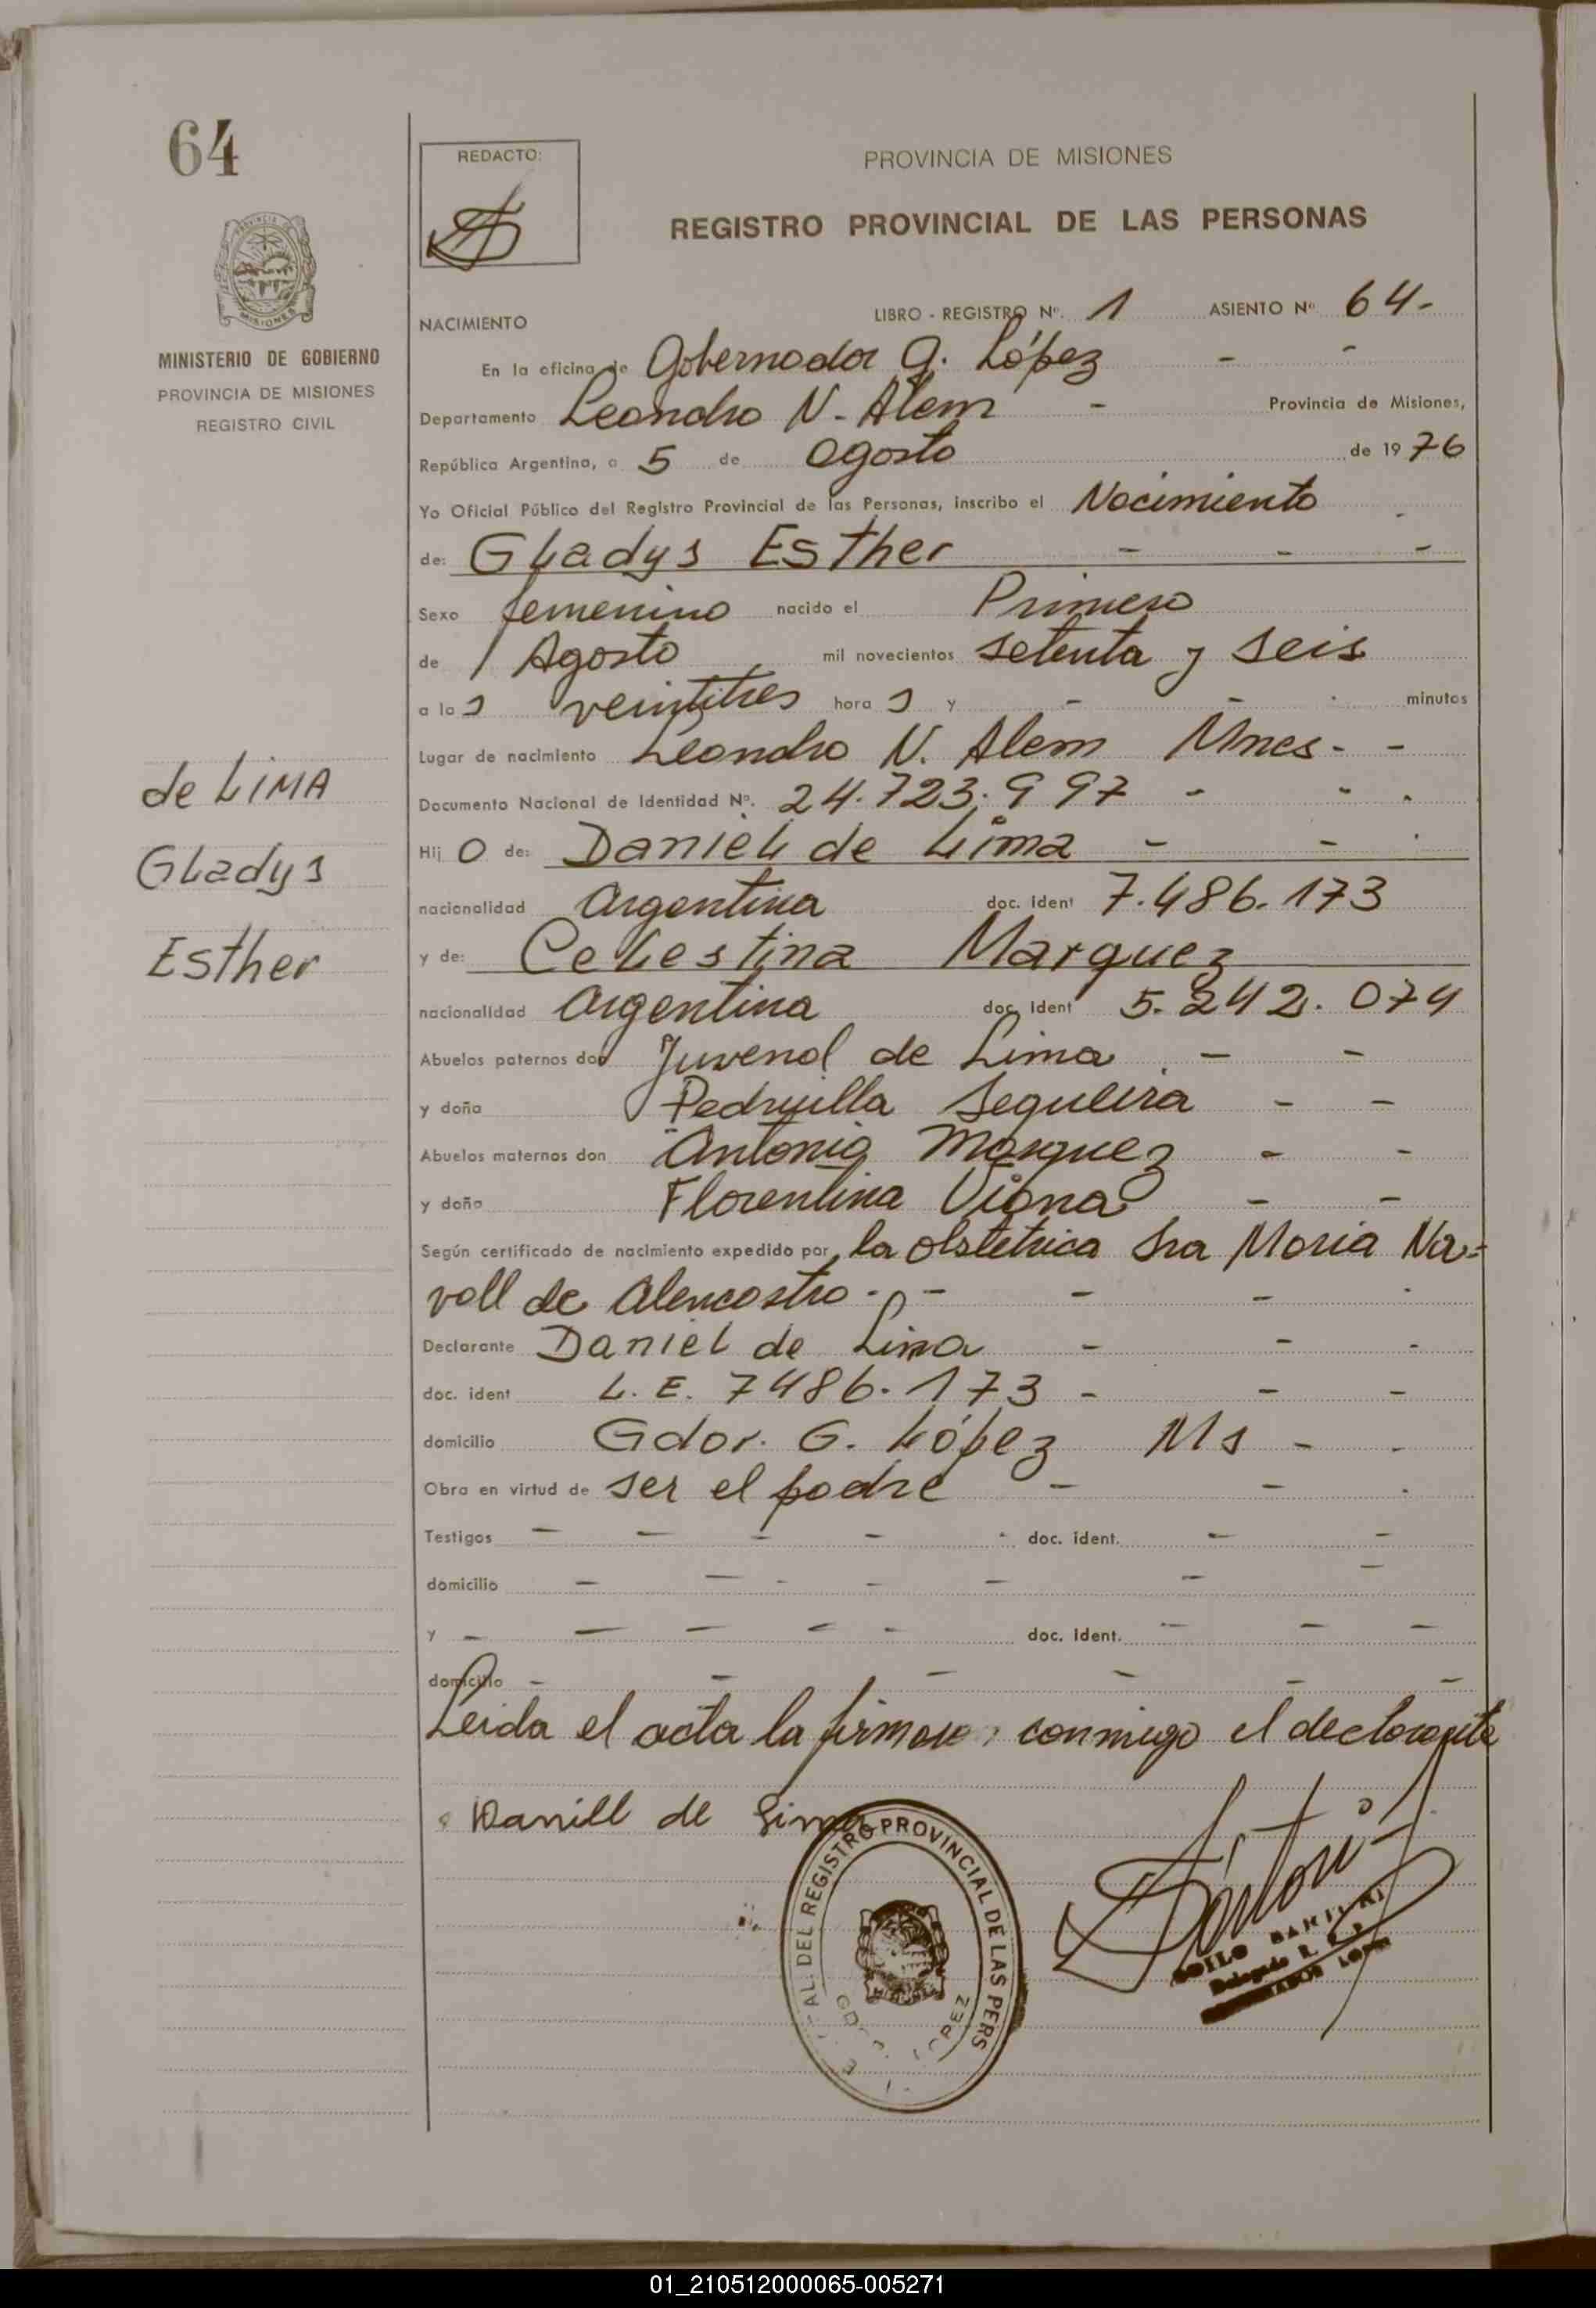 64
REDACTO:
PROVINCIA DE MISIONES
REGISTRO PROVINCIAL DE LAS PERSONAS
PROVINCIA DE
MISIONES
MINISTERIO DE GOBIERNO
PROVINCIA DE MISIONES
REGISTRO CIVIL
NACIMIENTO LIBRO - REGISTRO Nº. 1 ASIENTO Nº 64-
En la oficina de Gobernador G. López - -
Departamento Leandro N. Alem - Provincia de Misiones,
República Argentina, a 5 de agosto de 1976
Yo Oficial Público del Registro Provincial de las Personas, inscribo el Nacimiento
de: Gladys Esther - - -
Sexo femenino nacido el Primero
de Agosto mil novecientos setenta y seis
a las veintitres horas y - - minutos
Lugar de nacimiento Leandro N. Alem Mnes. - -
Documento Nacional de Identidad Nº. 24.723.997 - - -
de LIMA
Hijo de: Daniel de Lima - - -
Gladys
nacionalidad Argentina doc. ident 7.486.173
Esther
y de: Celestina Marquez
nacionalidad Argentina doc. ident 5.242.074
Abuelos paternos don Juvenal de Lima - -
y doña Sequeira - -
Abuelos maternos don Antonio Marquez - -
y doña Florentina Viana - -
Según certificado de nacimiento expedido por la obstetrica Sra Maria Na=
voll de Alencastro - - - -
Declarante Daniel de Lima - - -
doc. ident L. E. 7486.173 - - -
domicilio Gdor. G. López Ms - -
Obra en virtud de ser el padre - - -
Testigos - - - - - doc. ident. - -
domicilio - - - - - - -
y - - - - - doc. ident. - - -
domicilio - - - - - -
Leida el acta la firman conmigo el declarante
Danill de Lima
DEL REGISTRO PROVINCIAL DE LAS PERS
Delegado R. P. P.
01_210512000065-005271